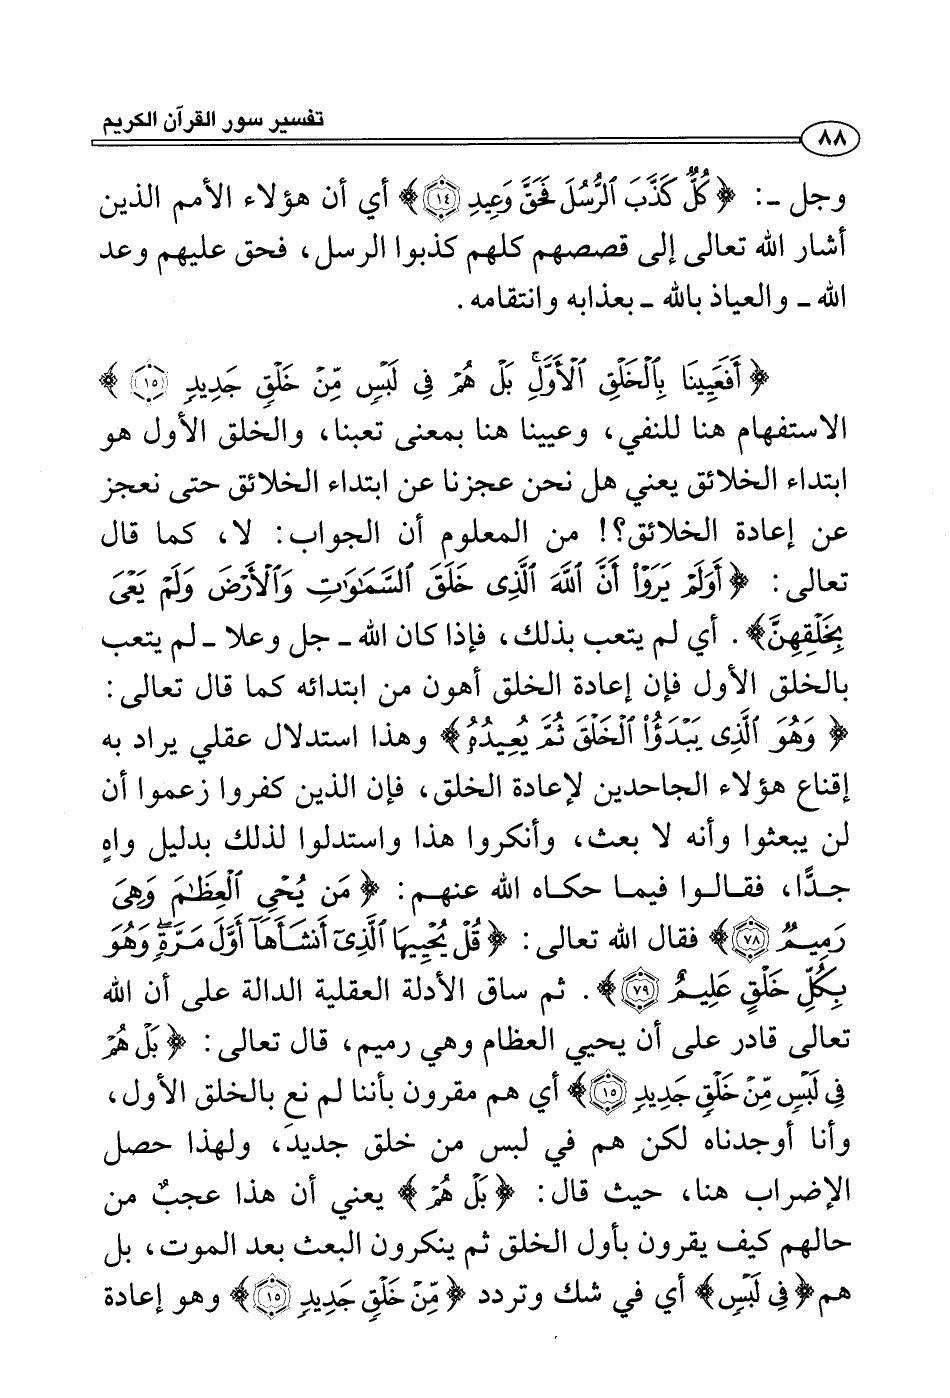 تفسير سور القرآن الكريم
٨٨
وجل ـ: ﴿كُلٌّ كَذَّبَ ٱلرُّسُلَ فَحَقَّ وَعِيدِ ١٤﴾ أي أن هؤلاء الأمم الذين
أشار الله تعالى إلى قصصهم كلهم كذبوا الرسل، فحق عليهم وعد
الله ـ والعياذ بالله ـ بعذابه وانتقامه.
﴿أَفَعَيِينَا بِٱلْخَلْقِ ٱلْأَوَّلِۚ بَلْ هُمْ فِى لَبْسٍ مِّنْ خَلْقٍ جَدِيدٍ ١٥﴾
الاستفهام هنا للنفي، وعيينا هنا بمعنى تعبنا، والخلق الأول هو
ابتداء الخلائق يعني هل نحن عجزنا عن ابتداء الخلائق حتى نعجز
عن إعادة الخلائق؟! من المعلوم أن الجواب: لا، كما قال
تعالى: ﴿أَوَلَمْ يَرَوْا۟ أَنَّ ٱللَّهَ ٱلَّذِى خَلَقَ ٱلسَّمَٰوَٰتِ وَٱلْأَرْضَ وَلَمْ يَعْىَ
بِخَلْقِهِنَّ﴾. أي لم يتعب بذلك، فإذا كان الله ـ جل وعلا ـ لم يتعب
بالخلق الأول فإن إعادة الخلق أهون من ابتدائه كما قال تعالى:
﴿وَهُوَ ٱلَّذِى يَبْدَؤُا۟ ٱلْخَلْقَ ثُمَّ يُعِيدُهُۥ﴾ وهذا استدلال عقلي يراد به
إقناع هؤلاء الجاحدين لإعادة الخلق، فإن الذين كفروا زعموا أن
لن يبعثوا وأنه لا بعث، وأنكروا هذا واستدلوا لذلك بدليل واهٍ
جدًّا، فقالوا فيما حكاه الله عنهم: ﴿مَن يُحْىِ ٱلْعِظَٰمَ وَهِىَ
رَمِيمٌ ٧٨﴾ فقال الله تعالى: ﴿قُلْ يُحْيِيهَا ٱلَّذِىٓ أَنشَأَهَآ أَوَّلَ مَرَّةٍۖ وَهُوَ
بِكُلِّ خَلْقٍ عَلِيمٌ ٧٩﴾. ثم ساق الأدلة العقلية الدالة على أن الله
تعالى قادر على أن يحيي العظام وهي رميم، قال تعالى: ﴿بَلْ هُمْ
فِى لَبْسٍ مِّنْ خَلْقٍ جَدِيدٍ ١٥﴾ أي هم مقرون بأننا لم نع بالخلق الأول،
وأنا أوجدناه لكن هم في لبس من خلق جديد، ولهذا حصل
الإضراب هنا، حيث قال: ﴿بَلْ هُمْ﴾ يعني أن هذا عجبٌ من
حالهم كيف يقرون بأول الخلق ثم ينكرون البعث بعد الموت، بل
هم ﴿فِى لَبْسٍ﴾ أي في شك وتردد ﴿مِّنْ خَلْقٍ جَدِيدٍ ١٥﴾ وهو إعادة